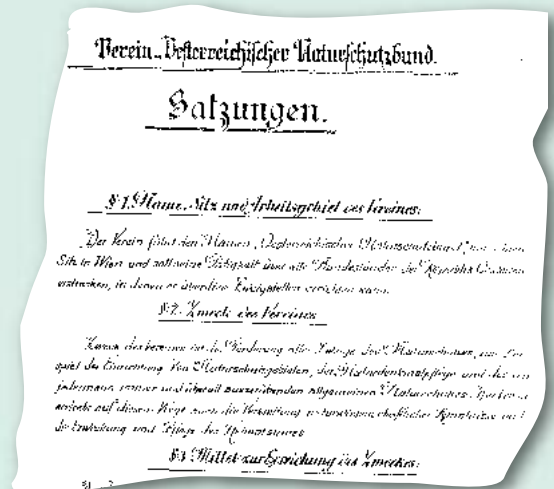 Verein „Österreichischer Naturschutzbund.
Satzungen.
§ 1. Name, Sitz und Arbeitsgebiet des Vereines:
Der Verein führt den Namen „Oesterreichischer Naturschutzbund“, hat
Sitz in Wien und soll seine Tätigkeit über alle Bundesländer der Republik
erstrecken, in denen er überdies Zweigstellen errichten kann.
§ 2. Zweck des Vereines
Zweck des Vereines ist die Förderung aller Belange des Naturschutzes, zum
spiel der Einrichtung von Naturschutzgebieten, der Naturdenkmalpflege und des von
jedermann immer und überall auszuübenden allgemeinen Naturschutzes. Der Verein
auf diesem Wege auch die Verbreitung naturwissenschaftlicher Kenntnisse und
die und Pflege des Heimatsinnes
§ 3. Mittel zur Erreichung des Zweckes: